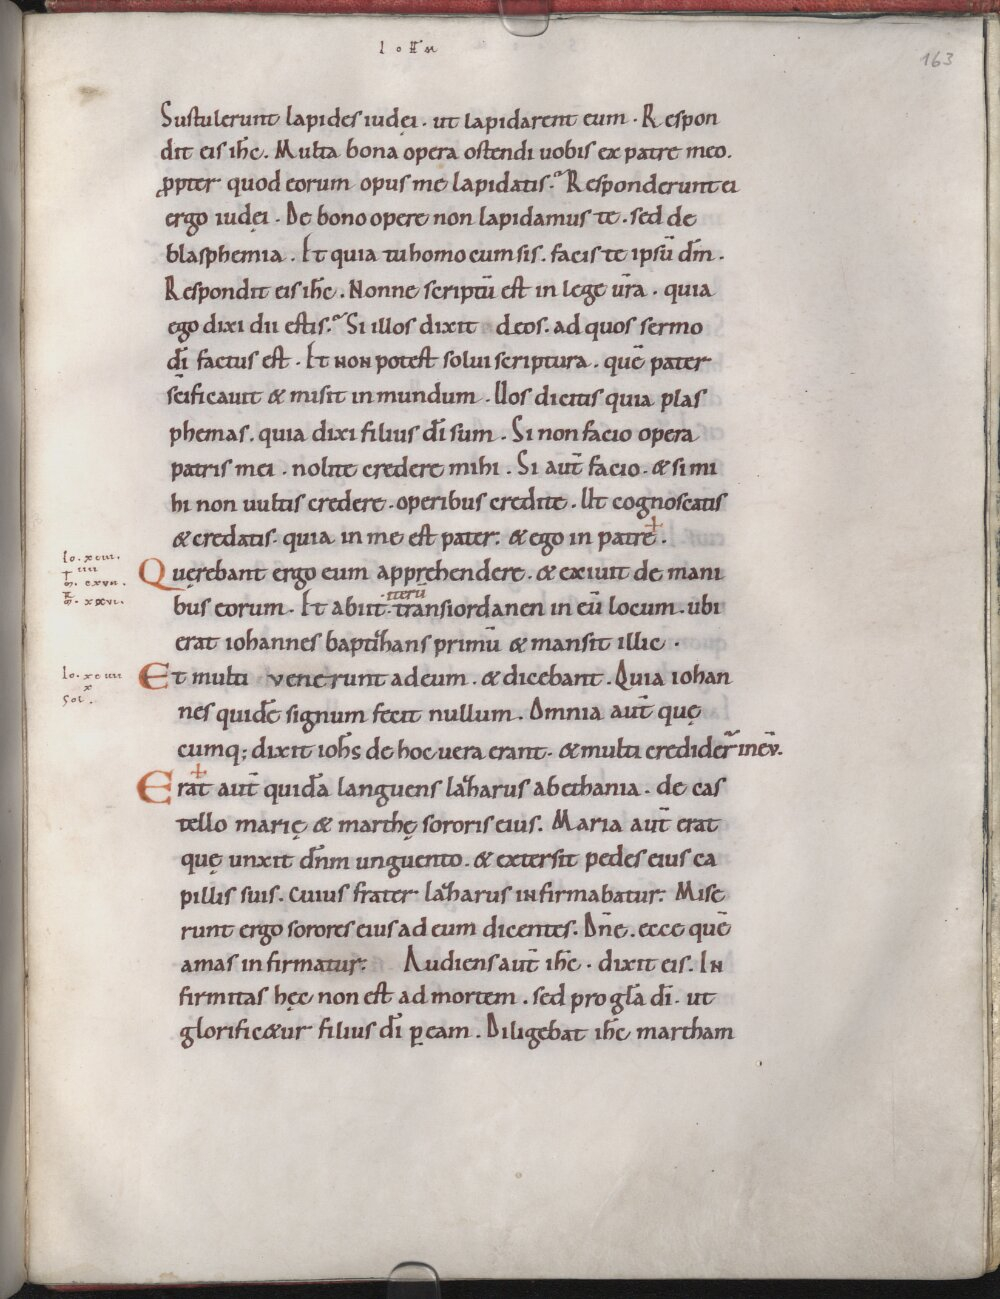 IOHAN
163
Sustulerunt lapides iudęi · ut lapidarent eum · Respon
dit eis ihc̄. Multa bona opera ostendi uobis ex patre meo.
ꝓpter quod eorum opus me lapidatis · Responderunt ei
ergo iudęi · De bono opere non lapidamus te · sed de
blasphemia . Et quia tu homo cum sis . facis te ipsū dm̄ .
Respondit eis ihc̄ . Nonne scriptū est in lege ūra · quia
ego dixi dii estis. Si illos dixit deos. ad quos sermo
dī factus est · Et non potest solui scriptura . quē pater
sc̄ificauit & misit in mundum . Uos dicitis quia plas
phemas . quia dixi filius dī sum . Si non facio opera
patris mei . nolite credere mihi . Si aut̄ facio . & si mi
hi non uultis credere . operibus credite . Ut cognoscatis
& credatis . quia in me est pater . & ego in patre .
Io. xcııı.
ıııı
Quęrebant ergo eum apprehendere . & exiuit de mani
bus eorum . Et abiit iterū transiordanen in eū locum . ubi
erat iohannes baptizans primū & mansit illic .
Et multi venerunt ad eum . & dicebant . Quia iohan
nes quidē signum fecit nullum . Omnia aut̄ quę
cumq; dixit iohs̄ de hoc uera erant . & multi credider̄ in eū.
Erat aut̄ quidā languens lazharus a bethania . de cas
tello marię & marthę sororis eius. Maria aut̄ erat
quę unxit dn̄m unguento . & extersit pedes eius ca
pillis suis . cuius frater lazharus infirmabatur . Mise
runt ergo sorores eius ad eum dicentes. Dn̄e . ecce quē
amas infirmatur . Audiens aut̄ ihc̄ . dixit eis. In
firmitas hęc non est ad mortem . sed pro gl̄a dī . ut
glorific&ur filius dī ꝑ eam . Diligebat ihc̄ martham